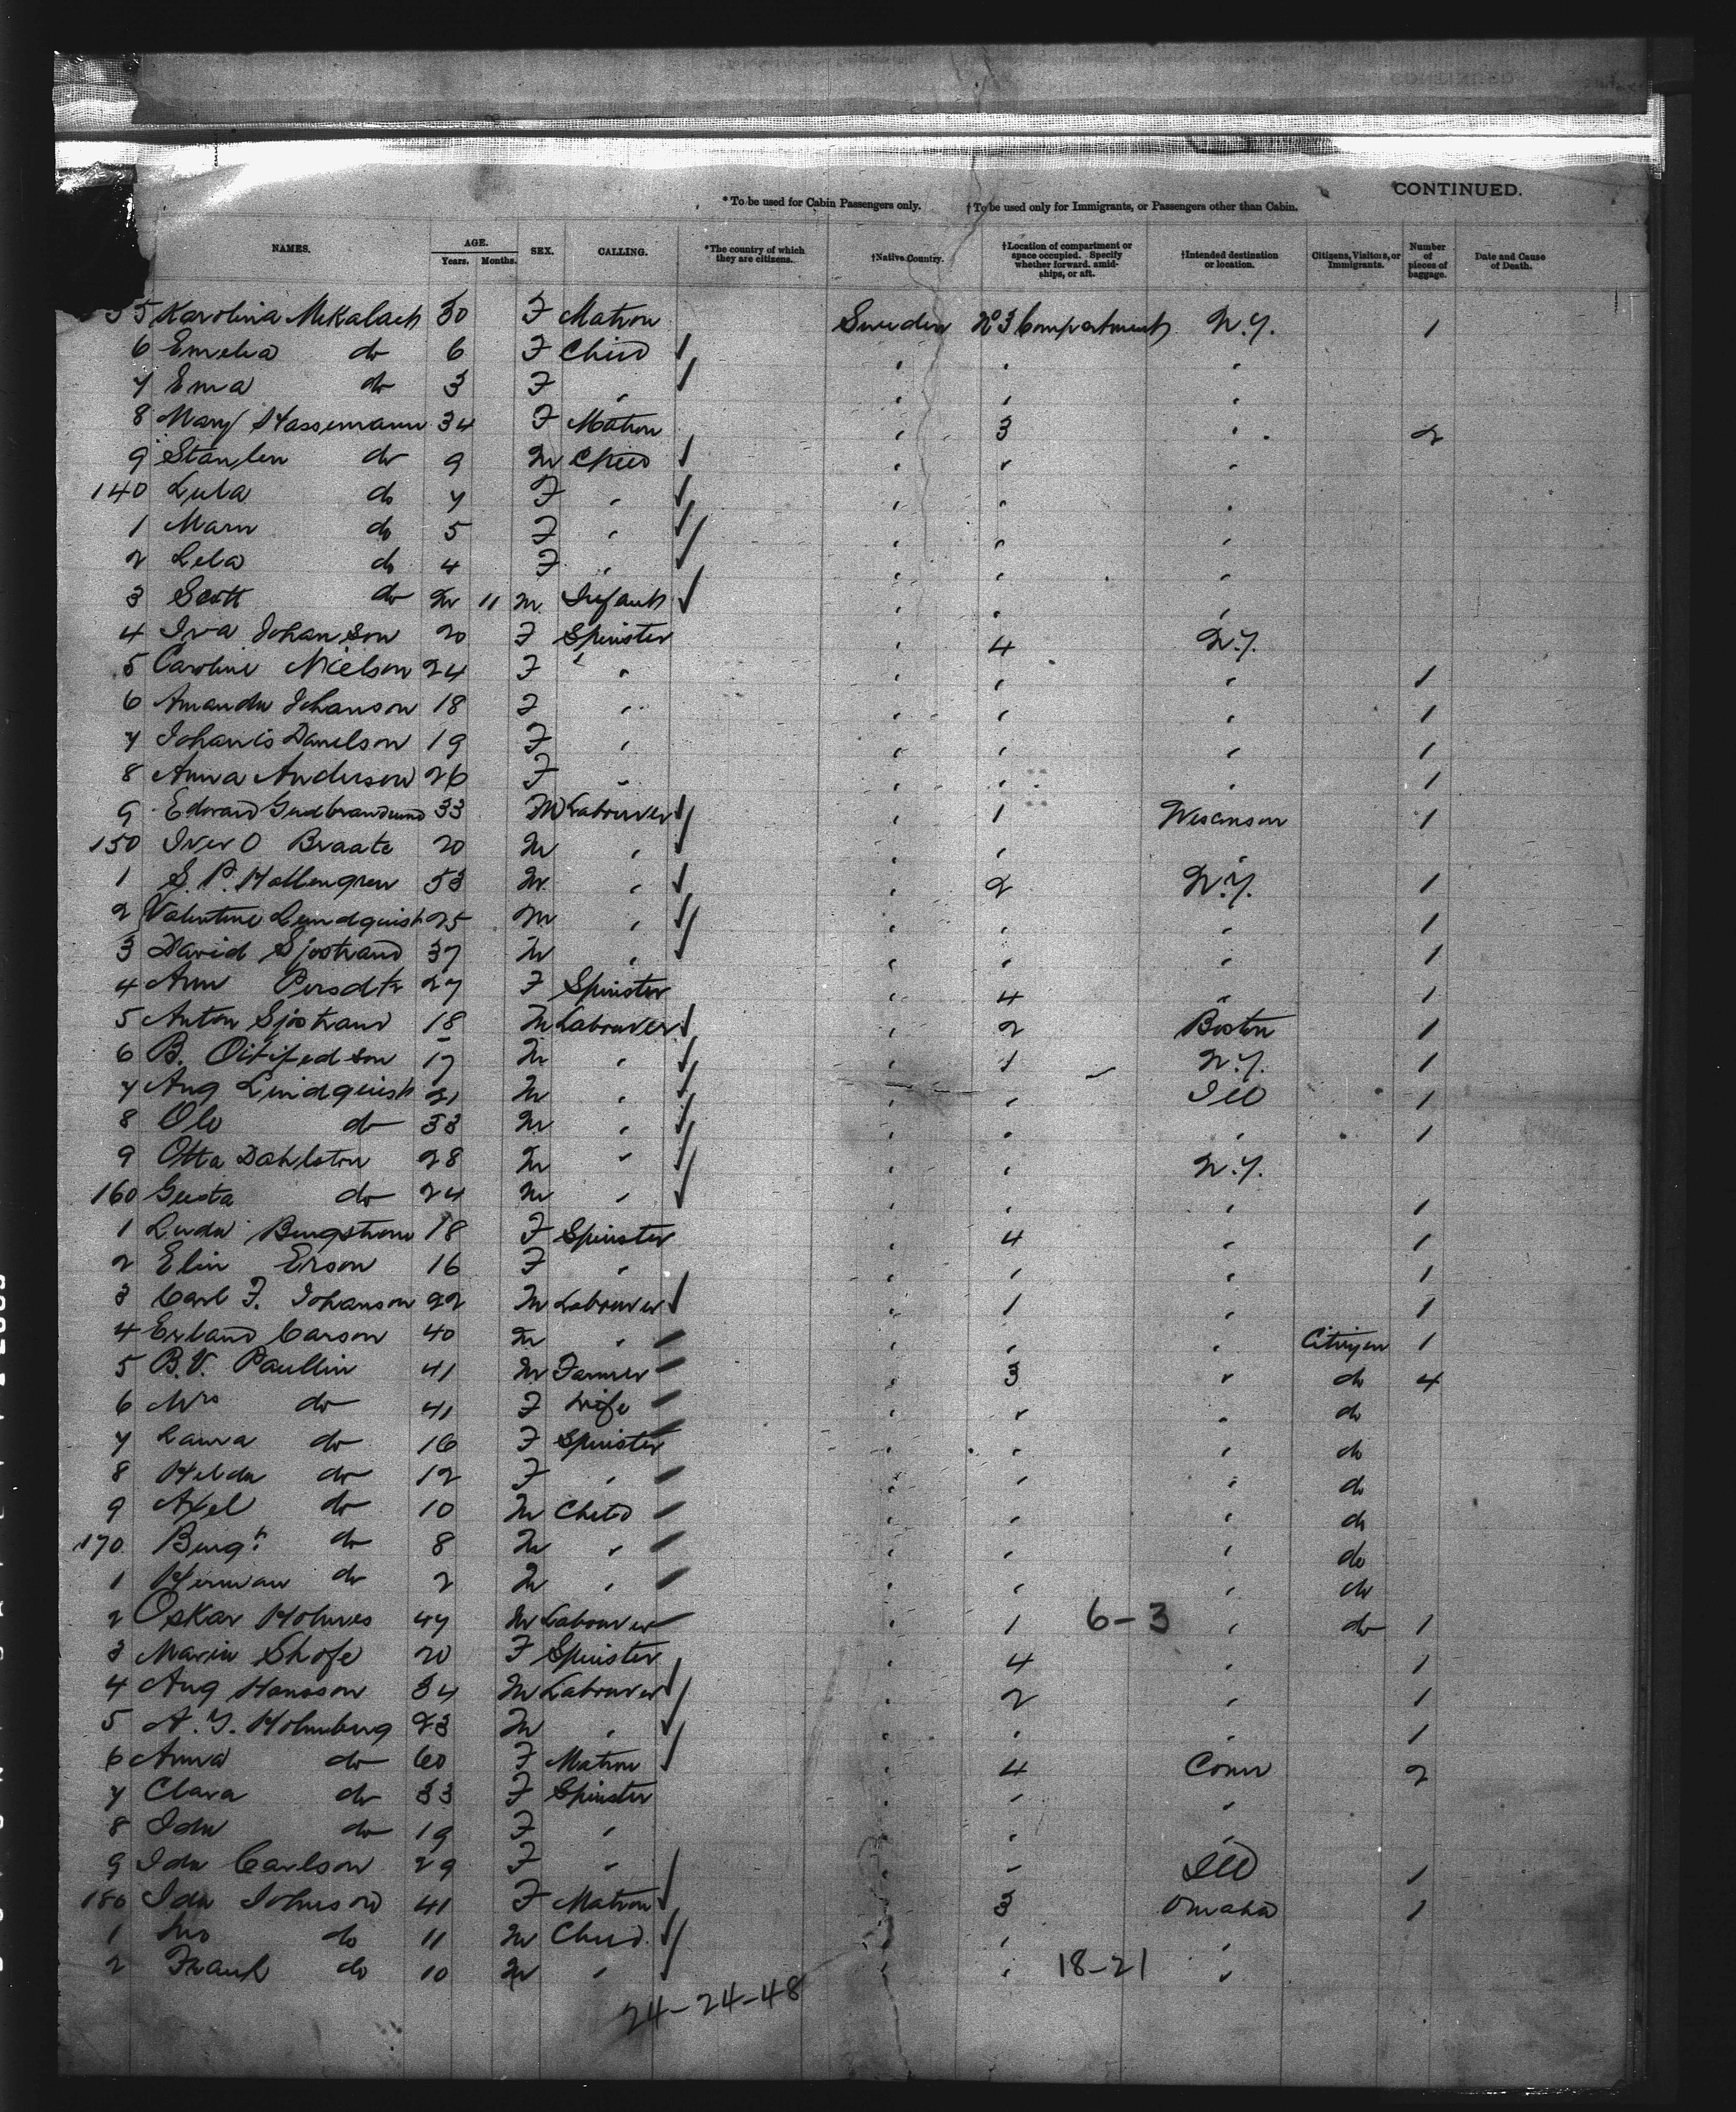 CONTINUED.
* To be used for Cabin Passengers only. † To be used only for Immigrants, or Passengers other than Cabin.
NAMES. AGE. Years. Months. SEX. CALLING. *The country of which they are citizens. †Native Country. †Location of compartment or space occupied. Specify whether forward, amidships, or aft. †Intended destination or location. Citizens, Visitors, or Immigrants. Number of pieces of baggage. Date and Cause of Death.
35 Karolina 30 F Matron Sweden No 3 Compartment N.Y. 1
6 Emelia do 6 F Child
7 Ema do 3 F "
8 Mary 34 F Matron " 3 " 2
9 Stanlen do 9 M Child
140 Lula do 7 F "
1 Marn do 5 F "
2 Lela do 4 F "
3 Scott do 11 M Infant
4 Iva Johanson 20 F Spinster " 4 N.Y.
5 Caroline Nielson 24 F " " " " 1
6 Amanda Johanson 18 F " " " " 1
7 Johanis Danelson 19 F " " " " 1
8 Anna Anderson 26 F " " " " 1
9 Edward 33 M Labourer " 1 Wisconson 1
150 Iver O Braate 20 M " " " "
1 S. P. Hallengren 53 M " " 2 N.Y. 1
2 Valentine Lundquist 25 M " " " " 1
3 David Sjostrand 37 M " " " " 1
4 Ann Persdtr 27 F Spinster " 4 " 1
5 Anton Sjostrand 18 M Labourer " 2 Boston 1
6 B. 17 M " " 1 N.Y. 1
7 Aug Lindquist 21 M " " " Ill 1
8 Olo do 33 M " " " " 1
9 Otta Dahlston 28 M " " " N.Y.
160 Gusta do 24 M " " " " 1
1 Bergstrom 18 F Spinster " 4 " 1
2 Elin Erson 16 F " " " " 1
3 Carl F. Johanson 22 M Labourer " 1 " 1
4 Erland Carson 40 M " " " " Citizen 1
5 B.V. Paullin 41 M Farmer " 3 " do 4
6 Mrs do 41 F Wife " " " do
7 Laura do 16 F Spinster " " " do
8 Helda do 12 F " " " " do
9 Axel do 10 M Child " " " do
170 Benj do 8 M " " " " do
1 Herman do 2 M " " " " do
2 Oskar Holmes 47 M Labourer " 1 6-3 " do 1
3 Maria Shofe 20 F Spinster " 4 " 1
4 Aug Hansson 34 M Labourer " 2 " 1
5 A. Y. Holmberg 23 M " " " " 1
6 Anna do 60 F Matron " 4 Conn 2
7 Clara do 33 F Spinster " " "
8 Ida do 19 F " " " "
9 Ida Carlson 29 F " " " Ill 1
180 Ida Johnson 41 F Matron " 3 Omaha 1
1 do 11 M Child " " "
2 Frank do 10 M " " " 18-21 "
24-24-48